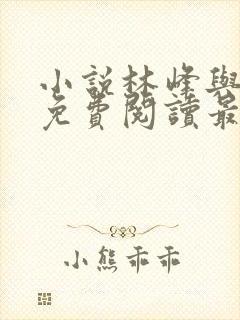 小說林峰與
免費閱讀最
小熊乖乖